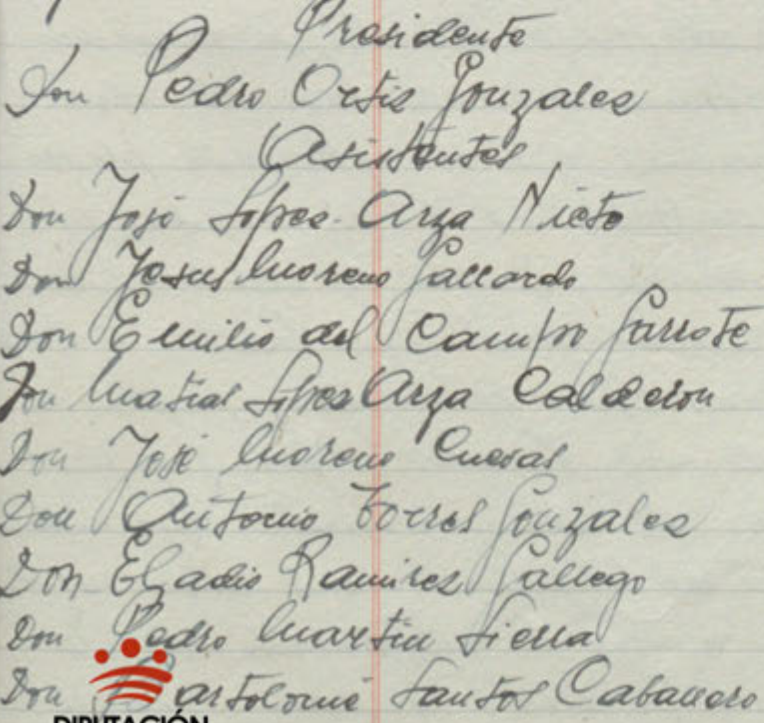 Presidente
Don Pedro Ortiz Gonzalez
Asistentes
Don José Lopez-Arza Nieto
Don Jesus Moreno Gallardo
Don Emilio del Campo Garrote
Don Matias Lopez Arza Calderon
Don José Moreno Cuevas
Don Antonio Torres Gonzalez
Don Eladio Ramirez Gallego
Don Pedro Martin Sierra
Don Bartolomé Santos Caballero
DIPUTACIÓN